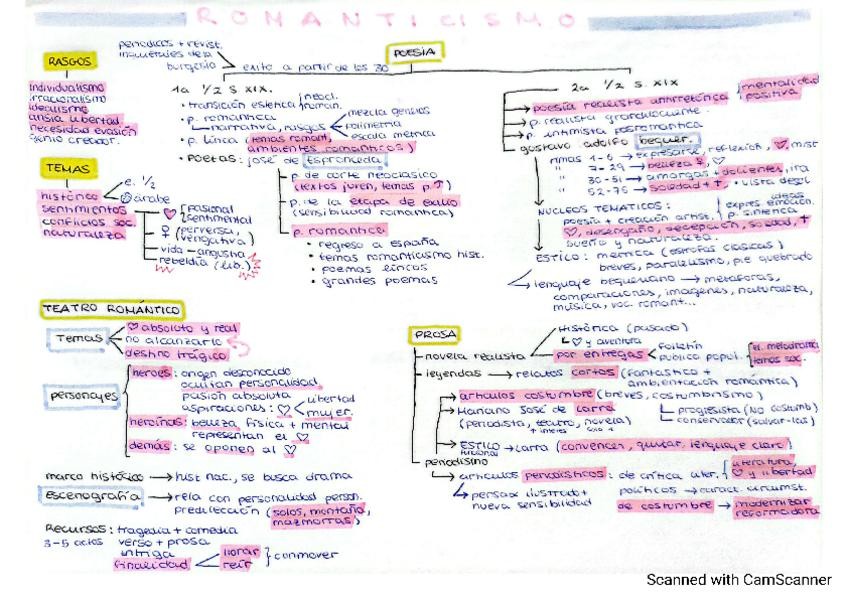 ROMANTICISMO
RASGOS
individualismo
irracionalismo
idealismo
ansia libertad
necesidad evasión
genio creador.
TEMAS
histórico
e. 1/2
árabe
sentimientos
conflictos soc.
naturaleza
♡ pasional
sentimental
♀ (perversa,
vengativa)
vida - angustia
rebeldía (lib.)
POESÍA
periódicos + revist.
burguesía
éxito a partir de los 30
1a 1/2 s. XIX.
• transición estética
neocl.
román.
• p. romántica
narrativa, rasgos
mezcla géneros
polimetría
escala métrica
• p. lírica (temas romant.
ambientes románticos)
• poetas: José de Espronceda
p. de corte neoclásico
(textos joven, temas p.↑)
p. de la etapa de exilio
(sensibilidad romántica)
p. romántica
• regreso a España
• temas romanticismo hist.
• poemas líricos
• grandes poemas
2a 1/2 s. XIX
poesía realista antirretórica
mentalidad
positiva
p. realista grandilocuente.
p. intimista posromántica
gustavo adolfo bequer.
rimas 1-6 → expresarse, reflexión, ♡, mist
" 7-29 → belleza, ♡
" 30-51 → amargas + dolientes, ira
" 52-76 → soledad + †,
NÚCLEOS TEMÁTICOS:
poesía + creación artist.
ideas
expres emoción.
p. sintética
♡, desengaño, decepción, soledad, †
sueño y naturaleza.
ESTILO: métrica (estrofas clásicas)
breves, paralelismo, pie quebrado
lenguaje bequeriano → metáforas,
comparaciones, imágenes, naturaleza,
música, voc. romant...
TEATRO ROMÁNTICO
Temas
♡ absoluto y real
no alcanzarlo
destino trágico
personajes
héroes: origen desconocido
ocultan personalidad.
pasión absoluta
aspiraciones: ♡
libertad
mujer.
heroínas: belleza física + mental
representan el ♡
demás: se oponen al ♡
marco histórico → hist nac., se busca drama
Escenografía → rela con personalidad person.
predilección (solos, montaña,
mazmorras)
Recursos: tragedia + comedia
3-5 actos verso + prosa
intriga
finalidad
llorar
reír
conmover
PROSA
novela realista
histórica (pasado)
↳ ♡ y aventura
por entregas
folletín
público popul.
el melodrama
temas soc.
leyendas → relatos cortos (fantástico +
ambientación romántica)
artículos costumbre (breves, costumbrismo)
Mariano José de Larra
(periodista, teatro, novela)
progresista (NO costumb)
conservador (salvar-las)
ESTILO → Larra (convencer, quizar, lenguaje claro)
periodismo
artículos periodísticos: de crítica liter.
literatura,
♡ y libertad
persona ilustrado +
nueva sensibilidad
políticos → caract. circumst.
de costumbre → modernizar
reformadora
Scanned with CamScanner